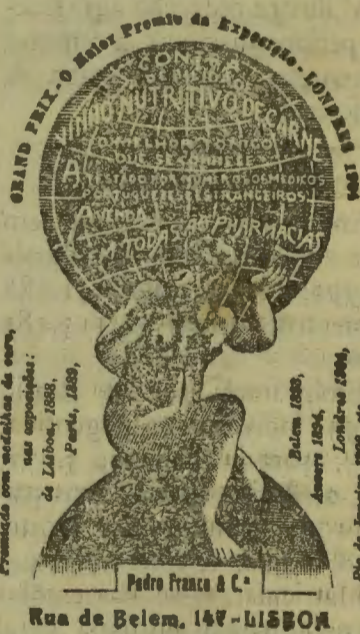 GRAND PRIX - O Maior Premio da Exposição - LONDRES 1904
CONTRA
DEBILIDADE
VINHO NUTRITIVO DE CARNE
O MELHOR TONICO
QUE SE CONHECE
ATTESTADO POR NUMEROSOS MEDICOS
PORTUGUEZES E ESTRANGEIROS
A VENDA
EM TODAS AS PHARMACIAS
Premiado com medalhas de ouro,
nas exposições:
de Lisboa 1888,
Paris, 1889,
Belem 1893,
Anvers 1894,
Londres 1904,
Rio de Janeiro
Pedro Franco & C.ª
Rua de Belem, 147 - LISBOA